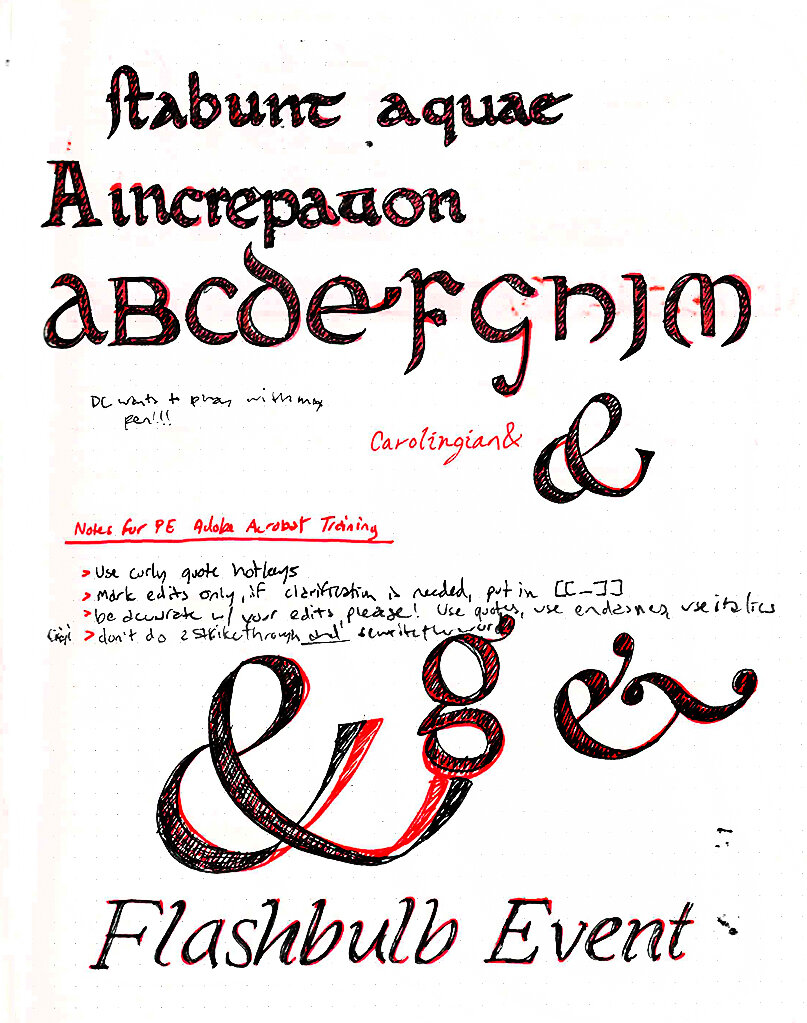 stabunt aquae
A increpation
aBCdeFGhJM
DC wants to play with my
pen!!!
Carolingian &
&
Notes for PE Adobe Acrobat Training
> Use curly quote hotkeys
> Mark edits only, if clarification is needed, put in [[_]]
> be accurate w/ your edits, please! Use quotes, use endashes, use italics
> don't do a strikethrough and rewrite the word
& g &
Flashbulb Event